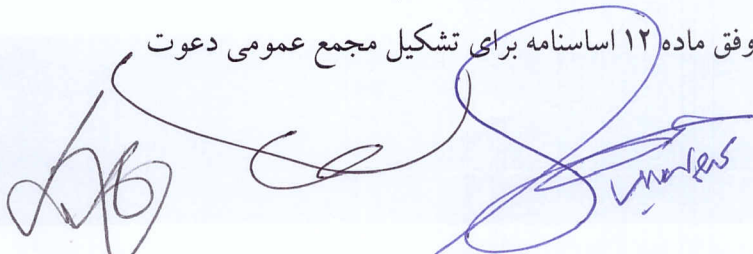 وفق ماده ۱۲ اساسنامه برای تشکیل مجمع عمومی دعوت